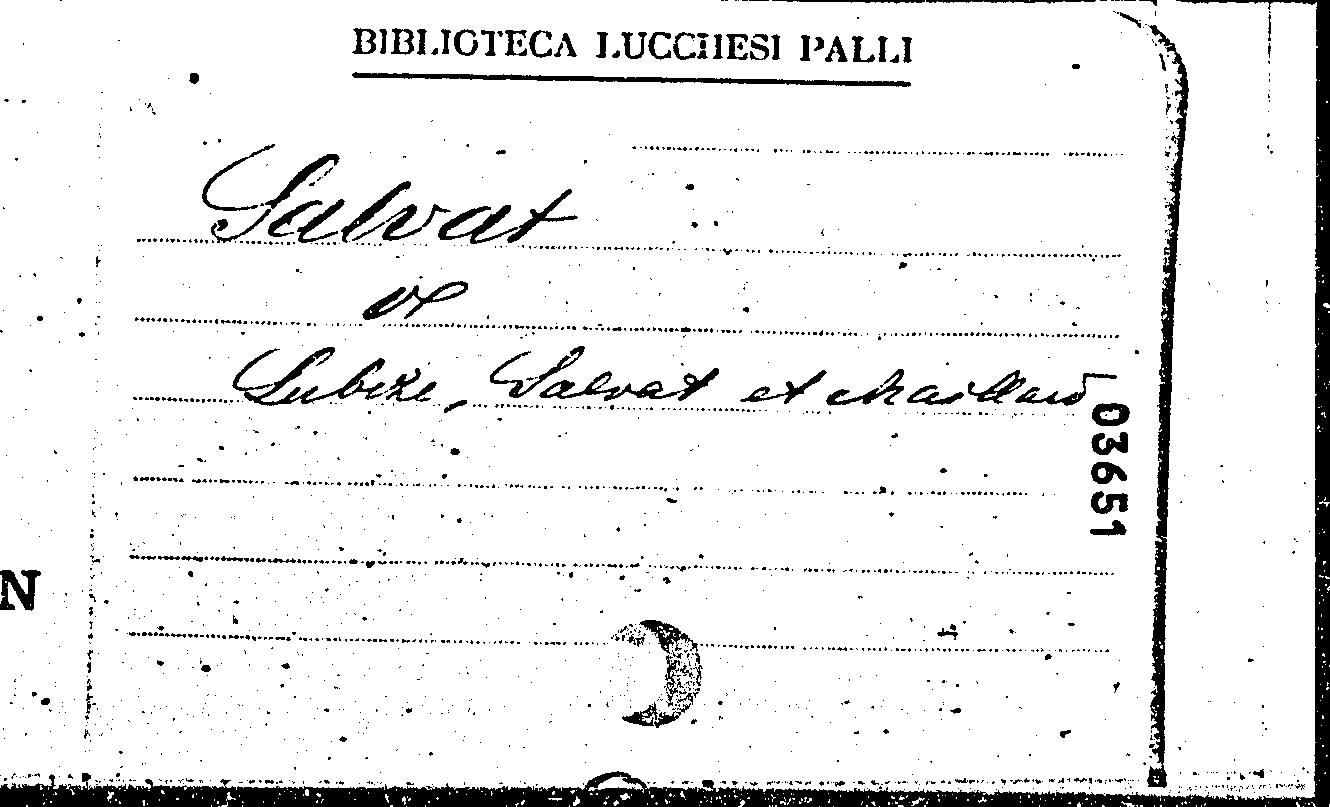 BIBLIOTECA LUCCHESI PALLI
Salvat
Lubize, Salvat et Maillard
03651
N